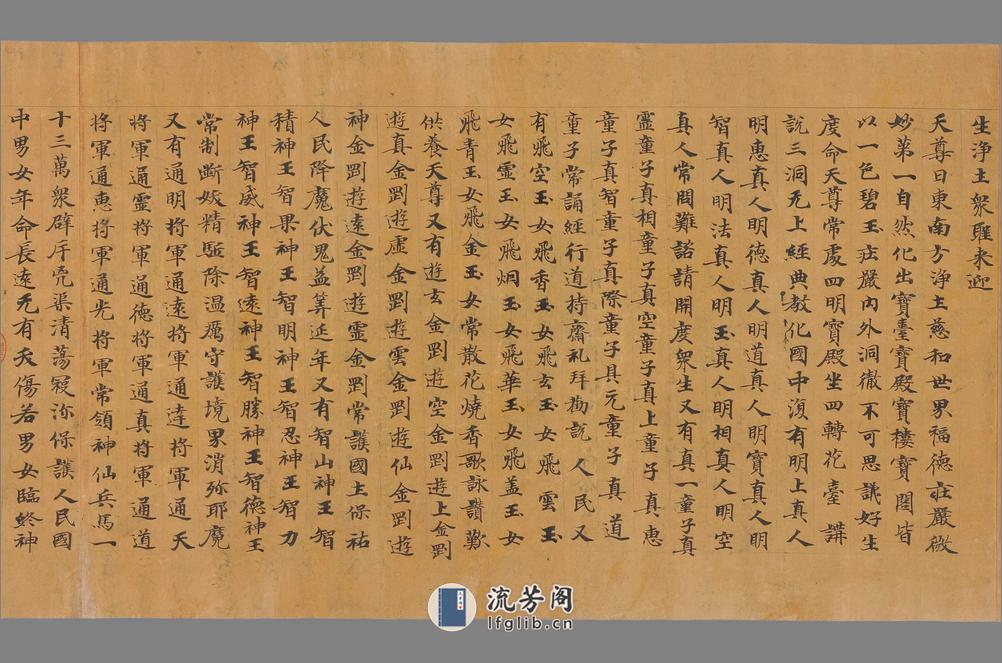 生淨土衆聖來迎
天尊曰東南方淨土慈和世界福德莊嚴微
妙第一自然化出寶臺寶殿寶樓寶閣皆
以一色碧玉莊嚴內外洞徹不可思議好生
度命天尊常處四明寶殿坐四轉花臺講
說三洞无上經典教化國中復有明上真人
明惠真人明德真人明道真人明寶真人明
智真人明法真人明玉真人明相真人明空
真人常閻難諮請開度衆生又有真一童子真
靈童子真相童子真空童子真上童子真惠
童子真智童子真際童子具元童子真道
童子常誦經行道持齋礼拜勸說人民又
有飛空玉女飛香玉女飛玄玉女飛雲玉
女飛靈玉女飛烟玉女飛華玉女飛盖玉女
飛青玉女飛金玉女常散花燒香歌詠讚歎
供養天尊又有遊玄金罡遊空金罡遊上金罡
遊真金罡遊虛金罡遊雲金罡遊仙金罡遊
神金罡遊遠金罡遊靈金罡常護國土保祐
人民降魔伏鬼益筭延年又有智山神王智
積神王智果神王智明神王智忍神王智力
神王智威神王智遠神王智勝神王智德神王
常制斷妖精駈除温癘守護境界消弥耶魔
又有通明將軍通遠將軍通達將軍通天
將軍通靈將軍通德將軍通真將軍通道
將軍通惠將軍通光將軍常領神仙兵馬一
十三萬衆辟斥兇渠清蕩寇沴保護人民國
中男女年命長遠无有夭傷若男女臨終神
流芳阁
lfglib.cn